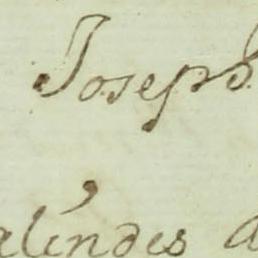 Joseph
alendes a